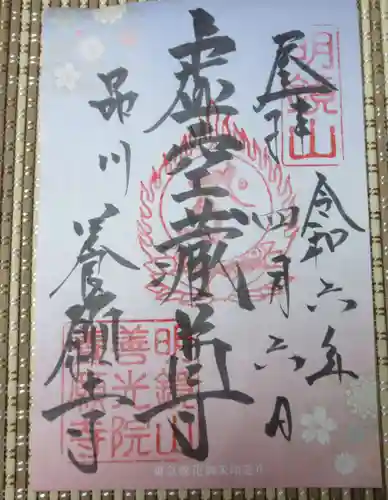 明鏡山
令和六年
四月六日
虚空蔵尊
品川
養願寺
明鏡山
善光院
養願寺